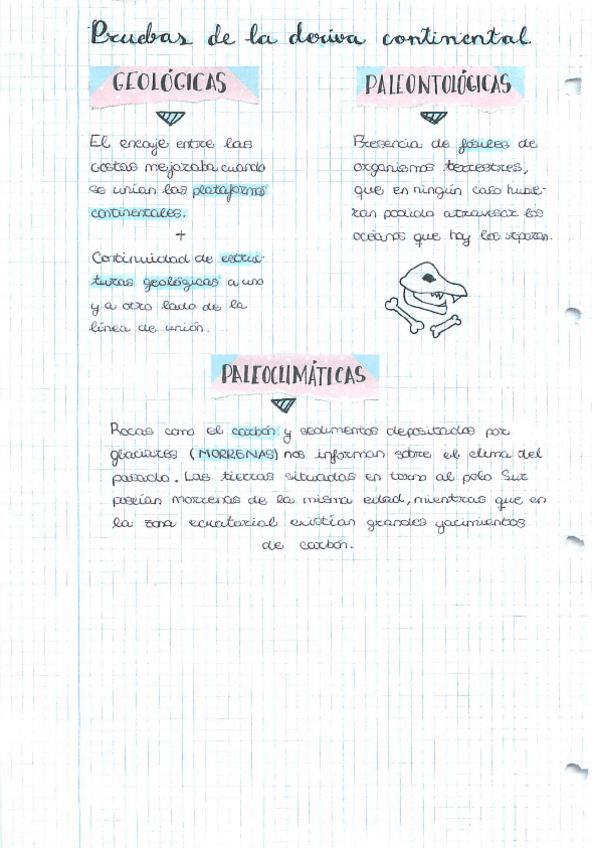 Pruebas de la deriva continental
GEOLÓGICAS
El encaje entre las
costas mejoraba cuando
se unían las plataformas
continentales.
+
Continuidad de estruc-
turas geológicas a uno
y a otro lado de la
línea de unión.
PALEONTOLÓGICAS
Presencia de fósiles de
organismos terrestres,
que en ningún caso hubie-
ran podido atravesar los
océanos que hoy los separan.
PALEOCLIMÁTICAS
Rocas como el carbón y sedimentos depositados por
glaciares (MORRENAS) nos informan sobre el clima del
pasado. Las tierras situadas en torno al polo Sur
poseían morrenas de la misma edad, mientras que en
la zona ecuatorial existían grandes yacimientos
de carbón.